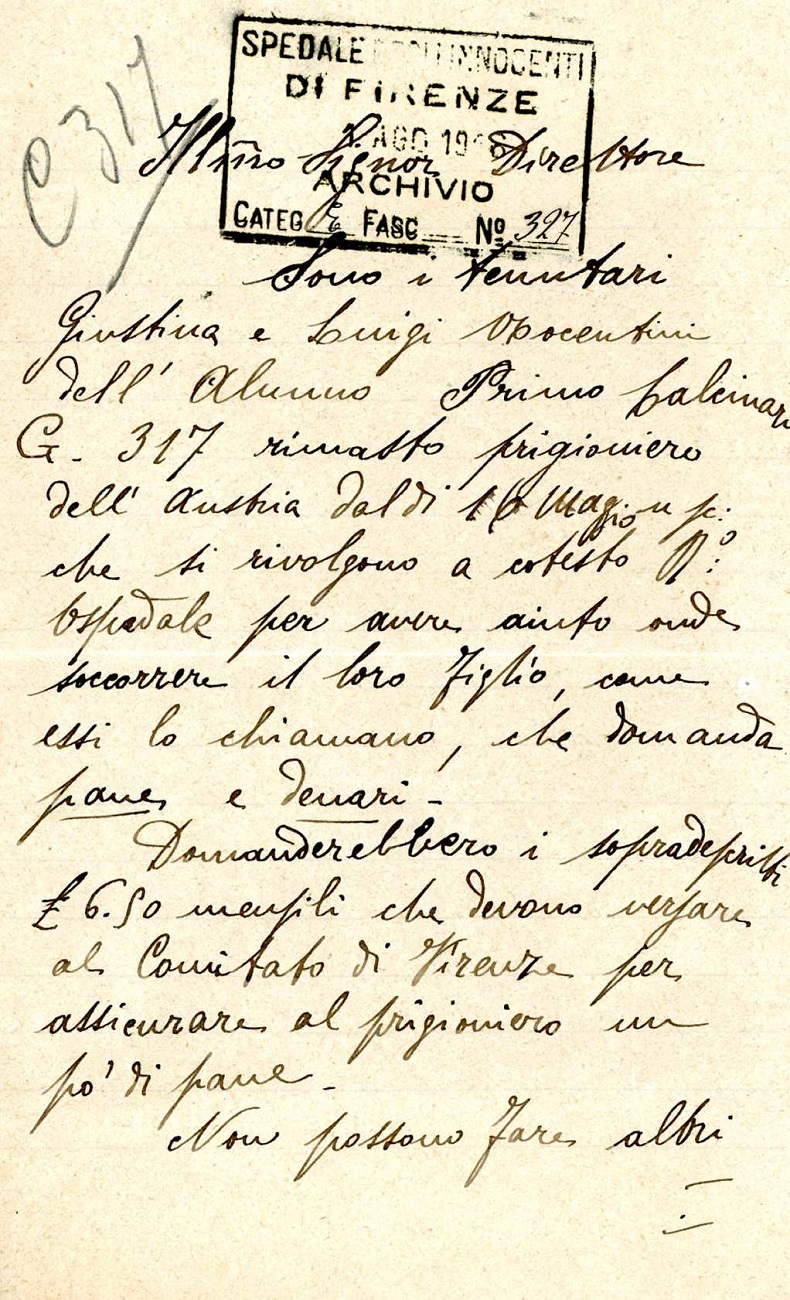 C 317
SPEDALE DEGLI INNOCENTI
DI FIRENZE
AGO 191
ARCHIVIO
CATEG FASC Nº 327
Illmo Signor Direttore
Sono i tenutari
Giustina e Luigi Nocentini
dell' Alunno Primo Calcinari
G. 317 rimasto prigioniero
dell' Austria dal dì 16 Maggio u p:
che si rivolgono a cotesto Rº:
Ospedale per avere aiuto onde
soccorrere il loro figlio, come
essi lo chiamano, che domanda
pane e denari -
Domanderebbero i sopradescritti
£ 6.50 mensili che devono versare
al Comitato di Firenze per
assicurare al prigioniero un
pò' di pane -
Non possono fare altri